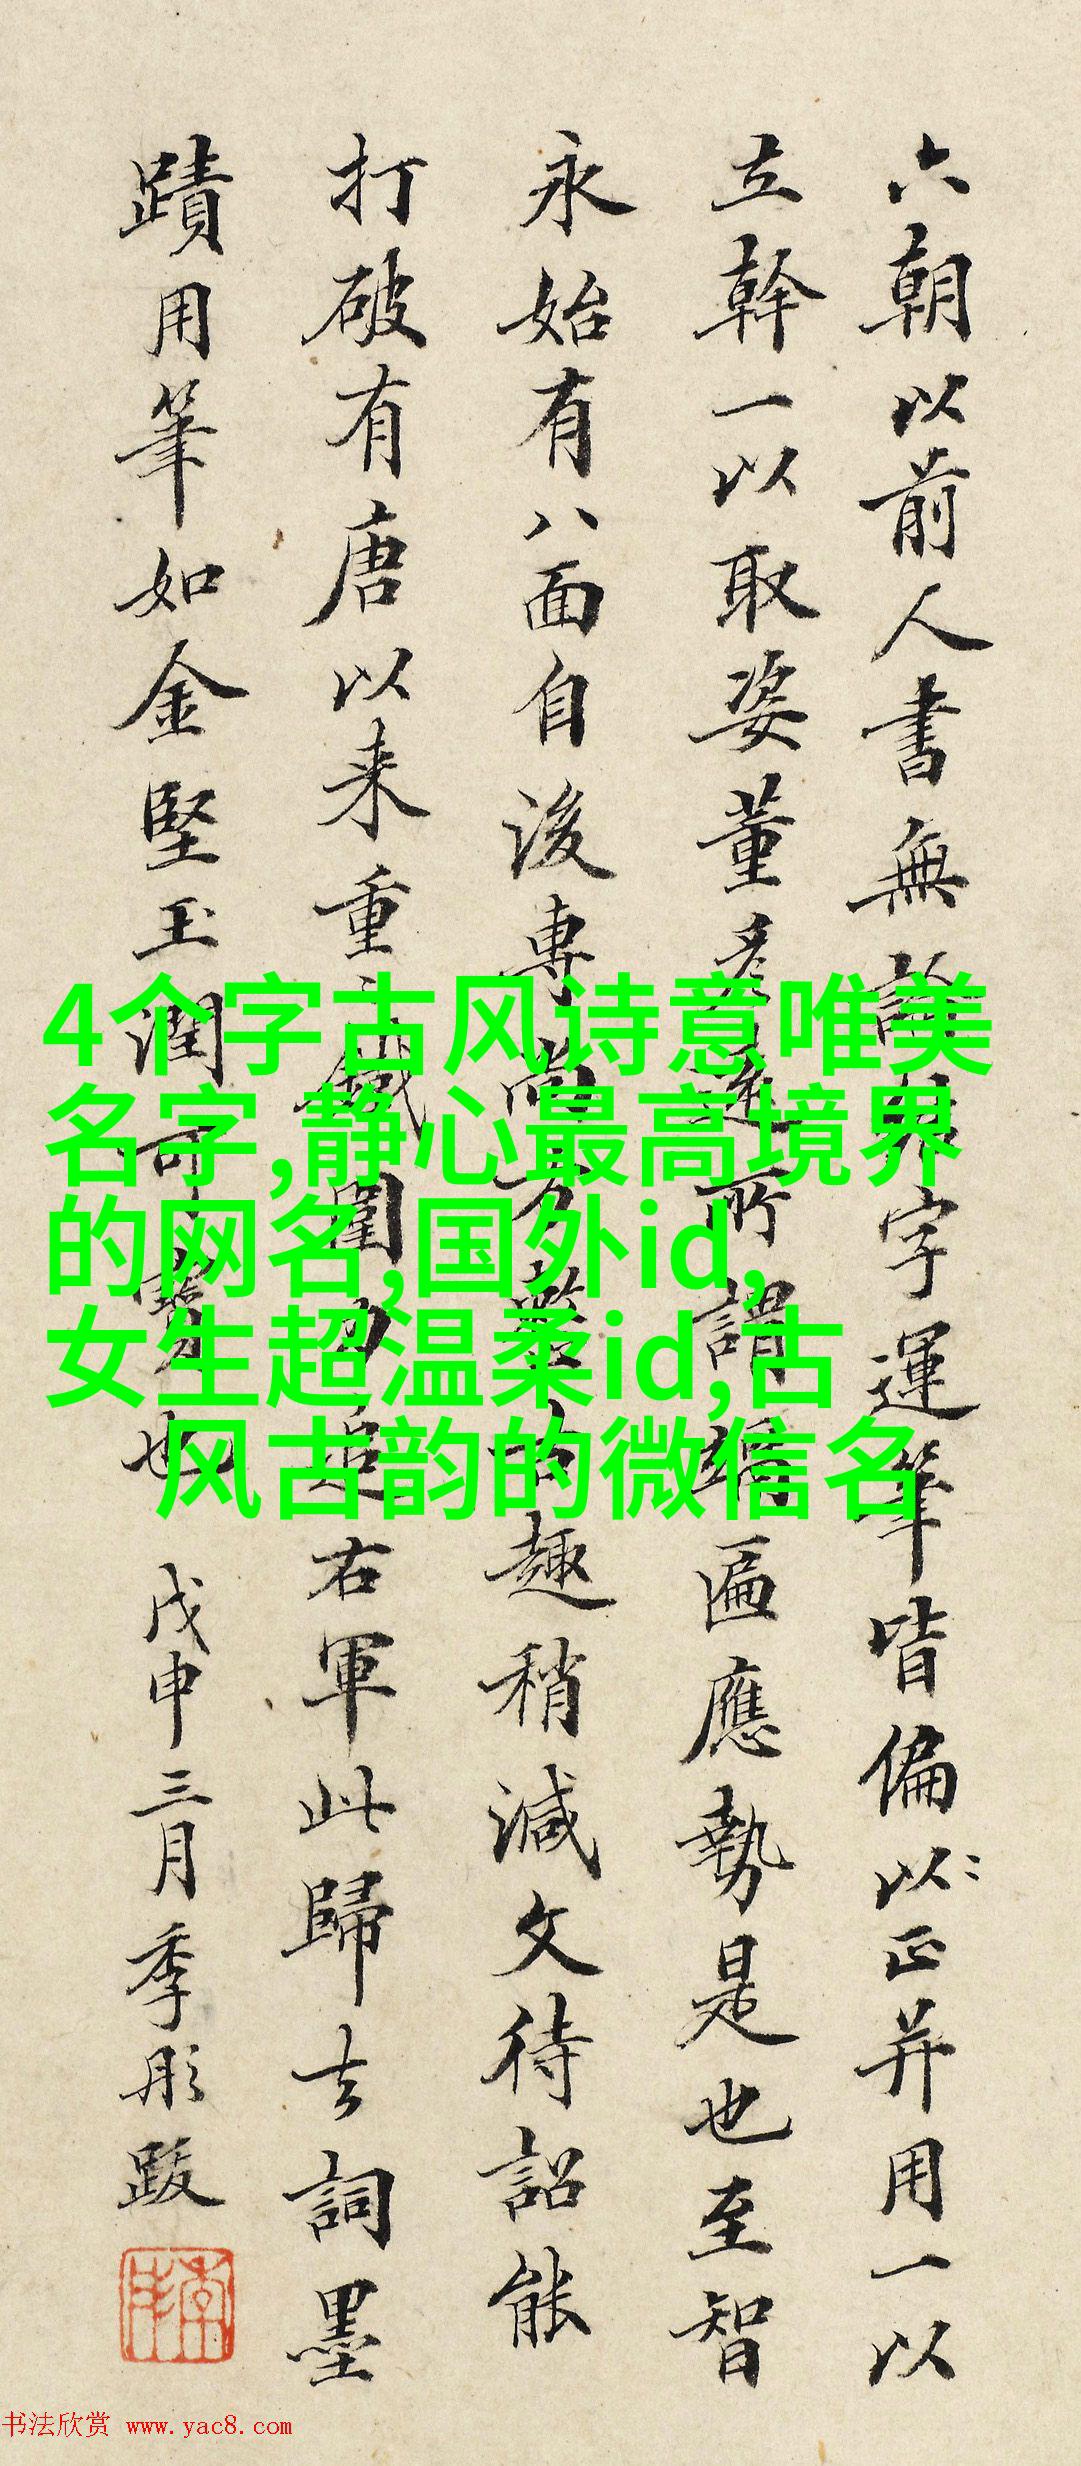 六朝以前人書無論字運筆皆偏以正并用一以
立幹一以取姿董彥遠所謂匾應勢是也至智
永始有八面自後專尚方嚴古趣稍減文待詔能
打破有唐以来重鐵圍力追右軍此歸去詞墨
蹟用筆如金堅玉潤可寶也 戊申三月季彤跋
4个字古风诗意唯美
名字,静心最高境界
的网名,国外id,
女生超温柔id,古
风古韵的微信名
书法欣赏 www.yac8.com